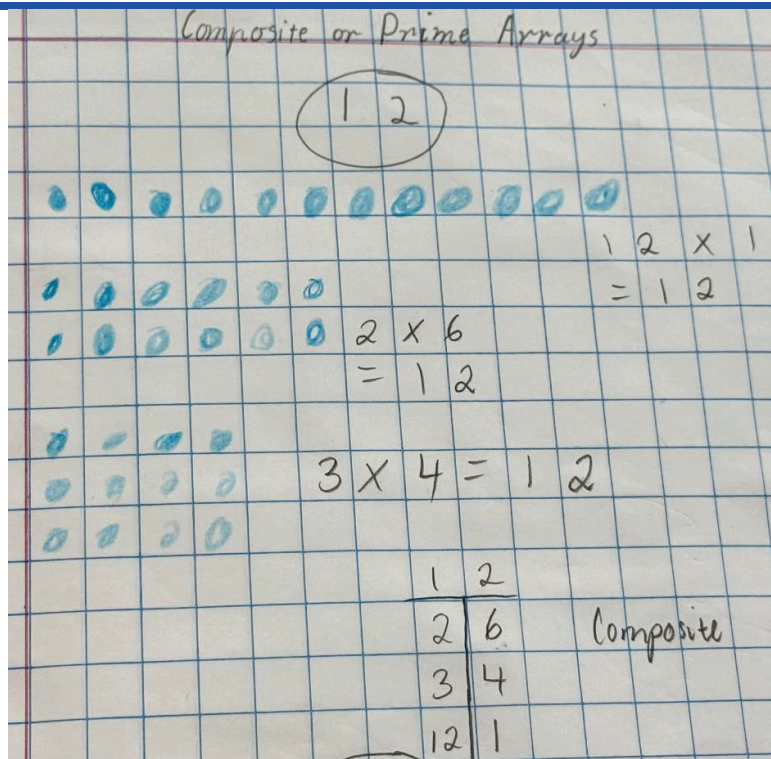 Composite or Prime Arrays
1 2
1 2 x 1
= 1 2
2 x 6
= 1 2
3 x 4 = 1 2
1 2
2 6 Composite
3 4
12 1